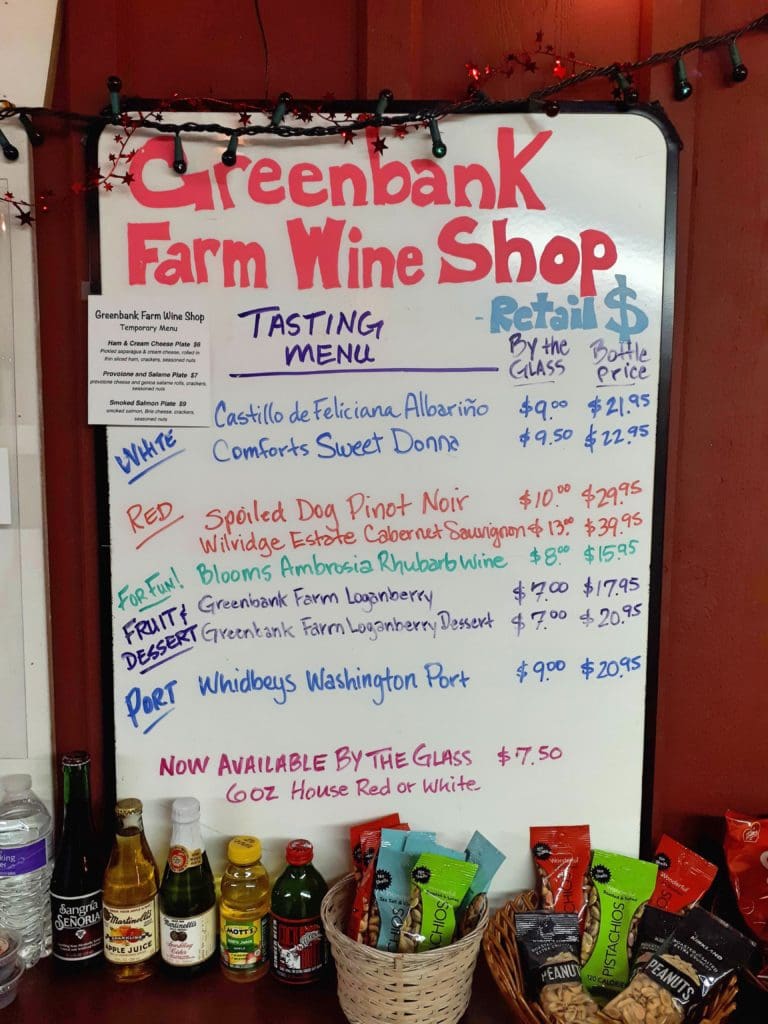 Greenbank
Farm Wine Shop
- Retail $
TASTING
MENU
By the
GLASS
Bottle
Price
Greenbank Farm Wine Shop
Temporary Menu
Ham & Cream Cheese Plate $6
Pickled asparagus & cream cheese, rolled in
thin sliced ham, crackers, seasoned nuts
Provolone and Salame Plate $7
provolone cheese and genoa salame rolls, crackers,
seasoned nuts
Smoked Salmon Plate $9
smoked salmon, Brie cheese, crackers,
seasoned nuts
WHITE
Castillo de Feliciana Albariño $9.00 $21.95
Comforts Sweet Donna $9.50 $22.95
RED
Spoiled Dog Pinot Noir $10.00 $29.95
Wilridge Estate Cabernet Sauvignon $13.00 $39.95
FOR FUN!
Blooms Ambrosia Rhubarb Wine $8.00 $15.95
FRUIT &
DESSERT
Greenbank Farm Loganberry $7.00 $17.95
Greenbank Farm Loganberry Dessert $7.00 $20.95
PORT
Whidbeys Washington Port $9.00 $20.95
NOW AVAILABLE BY THE GLASS $7.50
6 oz House Red or White
Sangria
SEÑORIAL
Martinelli's
SPARKLING
APPLE JUICE
Martinelli's
Sparkling
Cider
MOTT'S
100% JUICE
Apple
Wonderful
PISTACHIOS
Wonderful
PISTACHIOS
120 CALORIES
Wonderful
PEANUTS
KIRKLAND
PEANUTS